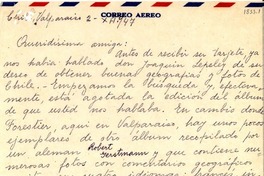 CORREO AEREO
1333.1
Valparaíso 2-XII-947
Queridísima amiga:
Antes de recibir su tarjeta ya
nos había hablado don Joaquin Lepeley de sus
deseos de obtener buena geografía y fotos de
Chile. Empezamos la búsqueda y, efectiva-
mente, está agotada la edición del álbum
de que usted nos hablara. En cambio donde
Forestier, aquí en Valparaíso, hay unos pocos
ejemplares de otro álbum recopilado por
un alemán Robert
Gerstmann y que contiene nu-
merosas fotos con comentarios geográficos
idiomas;